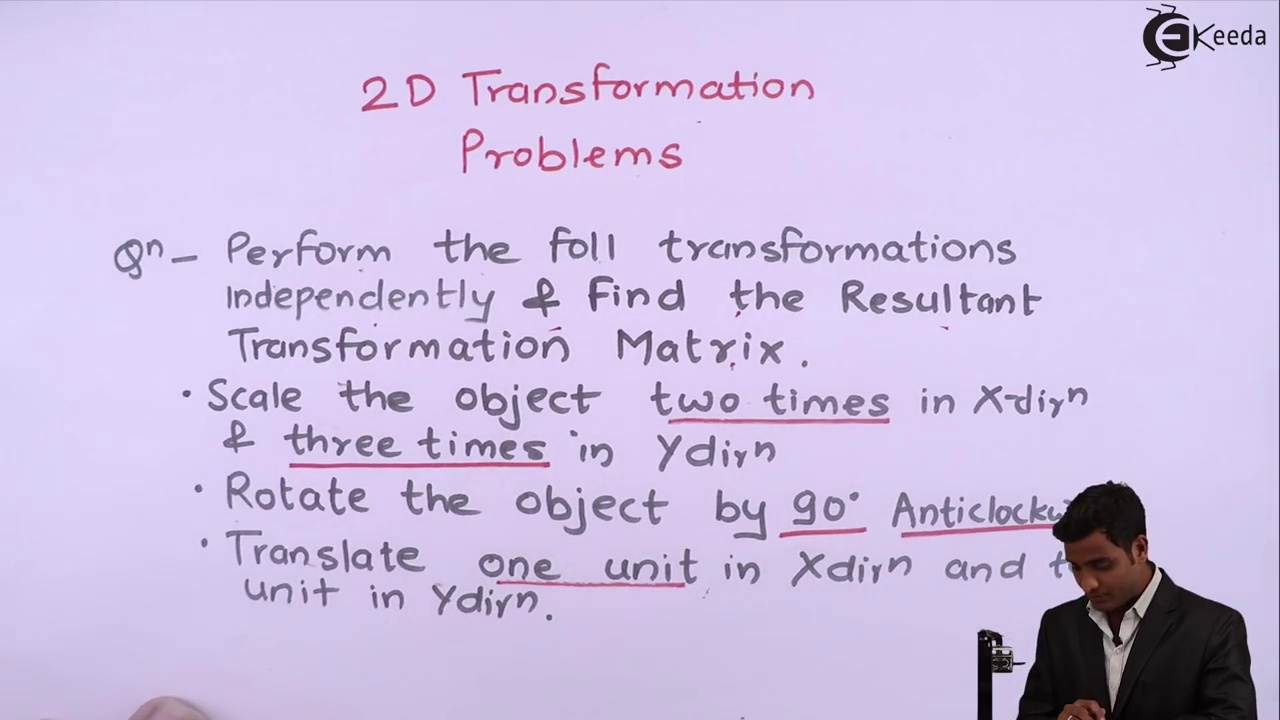 EKeeda
2D Transformation
Problems
Qn - Perform the foll transformations
independently & Find the Resultant
Transformation Matrix.
• Scale the object two times in X-dirn
& three times in Ydirn
• Rotate the object by 90° Anticlockw
• Translate one unit in Xdirn and t
unit in Ydirn.